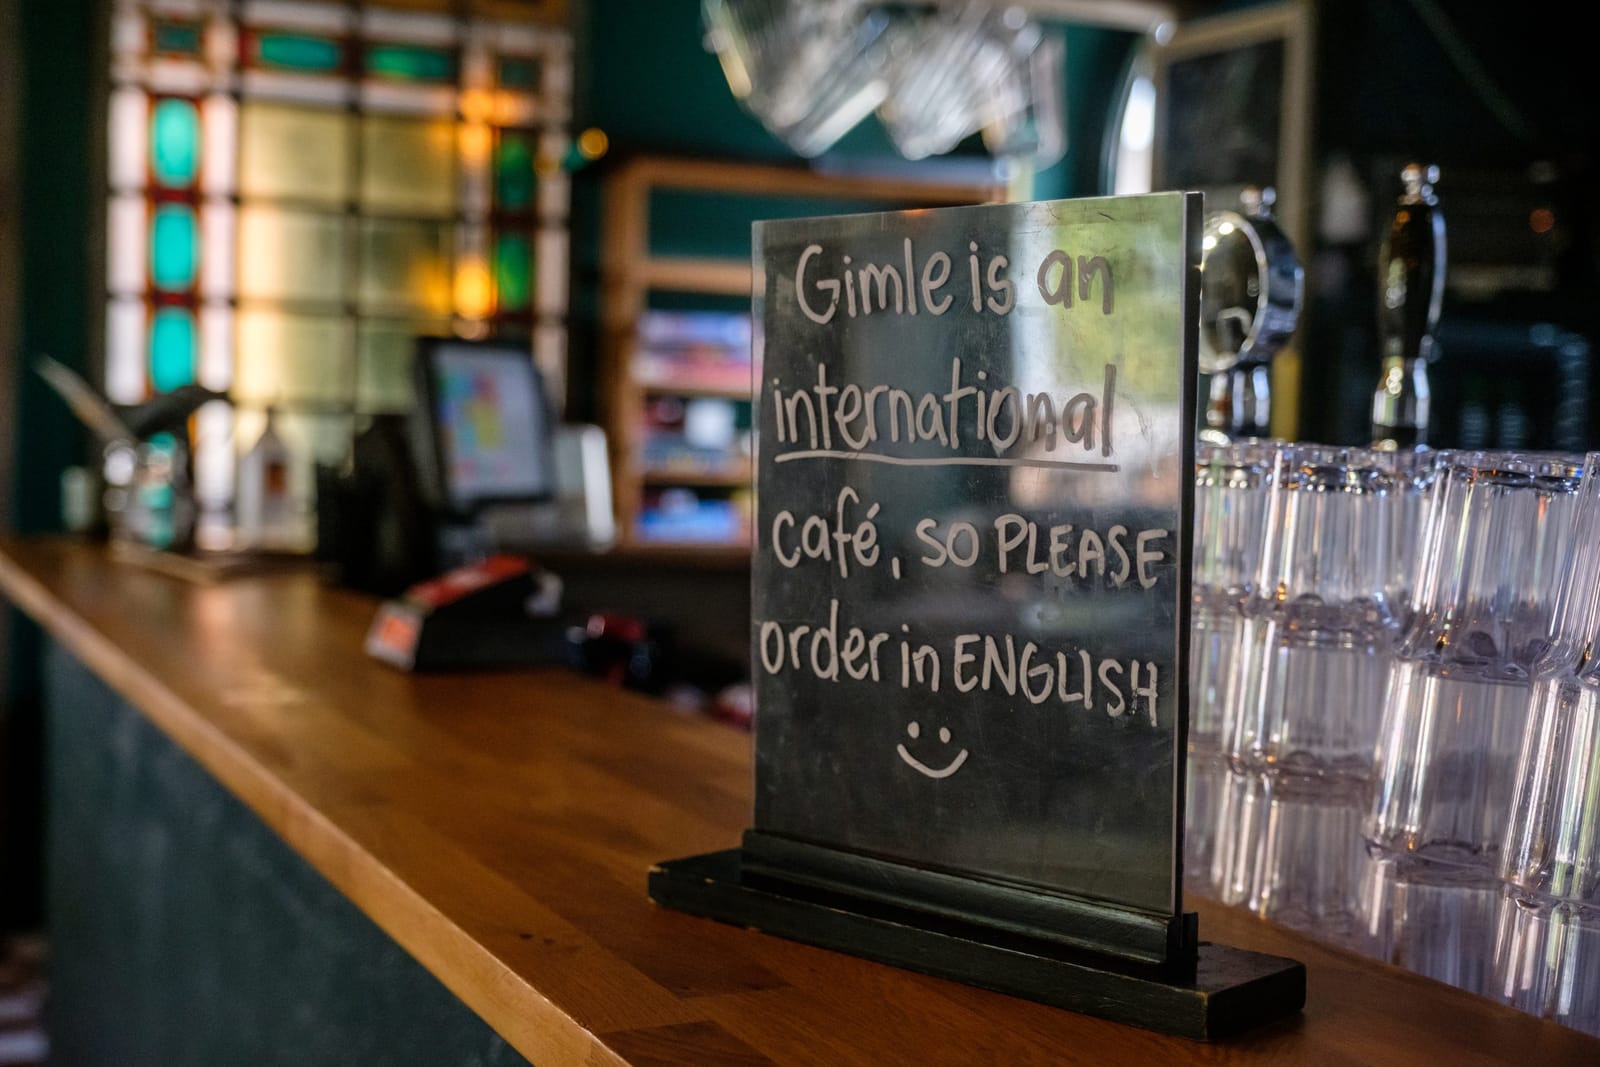 Gimle is an
international
café, so PLEASE
order in ENGLISH